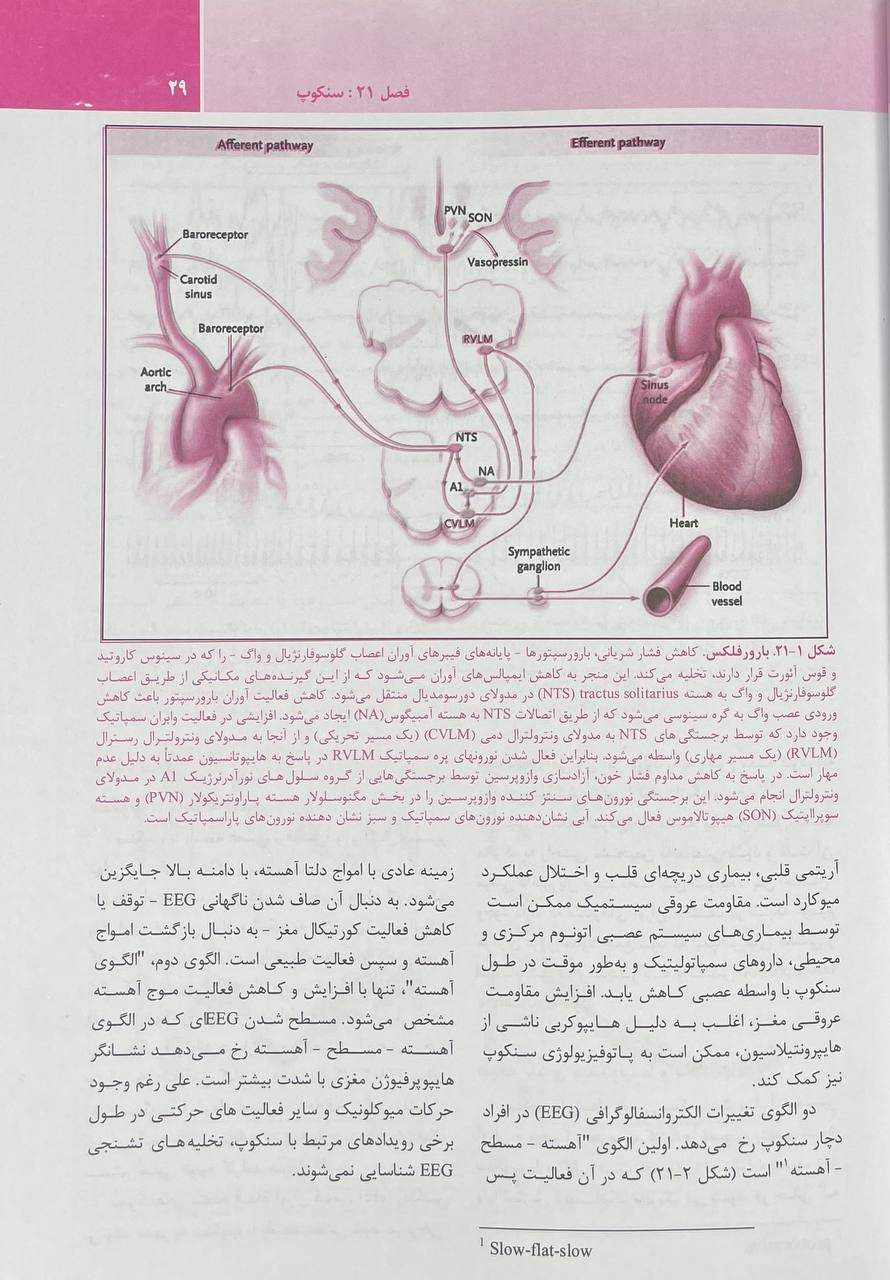 فصل ۲۱: سنکوپ
۲۹
Afferent pathway
Efferent pathway
PVN
SON
Vasopressin
Baroreceptor
Carotid
sinus
Baroreceptor
Aortic
arch
RVLM
Sinus
node
NTS
NA
A1
CVLM
Heart
Sympathetic
ganglion
Blood
vessel
شکل ۱-۲۱. بارورفلکس. کاهش فشار شریانی، بارورسپتورها - پایانه‌های فیبرهای آوران اعصاب گلوسوفارنژیال و واگ - را که در سینوس کاروتید
و قوس آئورت قرار دارند، تخلیه می‌کند. این منجر به کاهش ایمپالس‌های آوران می‌شود که از این گیرنده‌های مکانیکی از طریق اعصاب
گلوسوفارنژیال و واگ به هسته tractus solitarius (NTS) در مدولای دورسومدیال منتقل می‌شود. کاهش فعالیت آوران بارورسپتور باعث کاهش
ورودی عصب واگ به گره سینوسی می‌شود که از طریق اتصالات NTS به هسته آمبیگوس(NA) ایجاد می‌شود. افزایشی در فعالیت وابران سمپاتیک
وجود دارد که توسط برجستگی های NTS به مدولای ونترولترال دمی (CVLM) (یک مسیر تحریکی) و از آنجا به مدولای ونترولترال رسترال
(RVLM) (یک مسیر مهاری) واسطه می‌شود. بنابراین فعال شدن نورونهای پره سمپاتیک RVLM در پاسخ به هایپوتانسیون عمدتاً به دلیل عدم
مهار است. در پاسخ به کاهش مداوم فشار خون، آزادسازی وازوپرسین توسط برجستگی‌هایی از گروه سلول‌های نورآدرنرژیک A1 در مدولای
ونترولترال انجام می‌شود. این برجستگی نورون‌های سنتز کننده وازوپرسین را در بخش مگنوسلولار هسته پاراونتریکولار (PVN) و هسته
سوپرااپتیک (SON) هیپوتالاموس فعال می‌کند. آبی نشان‌دهنده نورون‌های سمپاتیک و سبز نشان دهنده نورون‌های پاراسمپاتیک است.
آریتمی قلبی، بیماری دریچه‌ای قلب و اختلال عملکرد
میوکارد است. مقاومت عروقی سیستمیک ممکن است
توسط بیماری‌های سیستم عصبی اتونوم مرکزی و
محیطی، داروهای سمپاتولیتیک و به‌طور موقت در طول
سنکوپ با واسطه عصبی کاهش یابد. افزایش مقاومت
عروقی مغز، اغلب به دلیل هایپوکربی ناشی از
هایپرونتیلاسیون، ممکن است به پاتوفیزیولوژی سنکوپ
نیز کمک کند.
دو الگوی تغییرات الکتروانسفالوگرافی (EEG) در افراد
دچار سنکوپ رخ می‌دهد. اولین الگوی "آهسته - مسطح
- آهسته¹" است (شکل ۲-۲۱) که در آن فعالیت پس
زمینه عادی با امواج دلتا آهسته، با دامنه بالا جایگزین
می‌شود. به دنبال آن صاف شدن ناگهانی EEG - توقف یا
کاهش فعالیت کورتیکال مغز - به دنبال بازگشت امواج
آهسته و سپس فعالیت طبیعی است. الگوی دوم، "الگوی
آهسته"، تنها با افزایش و کاهش فعالیت موج آهسته
مشخص می‌شود. مسطح شدن EEGای که در الگوی
آهسته - مسطح - آهسته رخ می‌دهد نشانگر
هایپوپرفیوژن مغزی با شدت بیشتر است. علی رغم وجود
حرکات میوکلونیک و سایر فعالیت های حرکتی در طول
برخی رویدادهای مرتبط با سنکوپ، تخلیه‌های تشنجی
EEG شناسایی نمی‌شوند.
¹ Slow-flat-slow